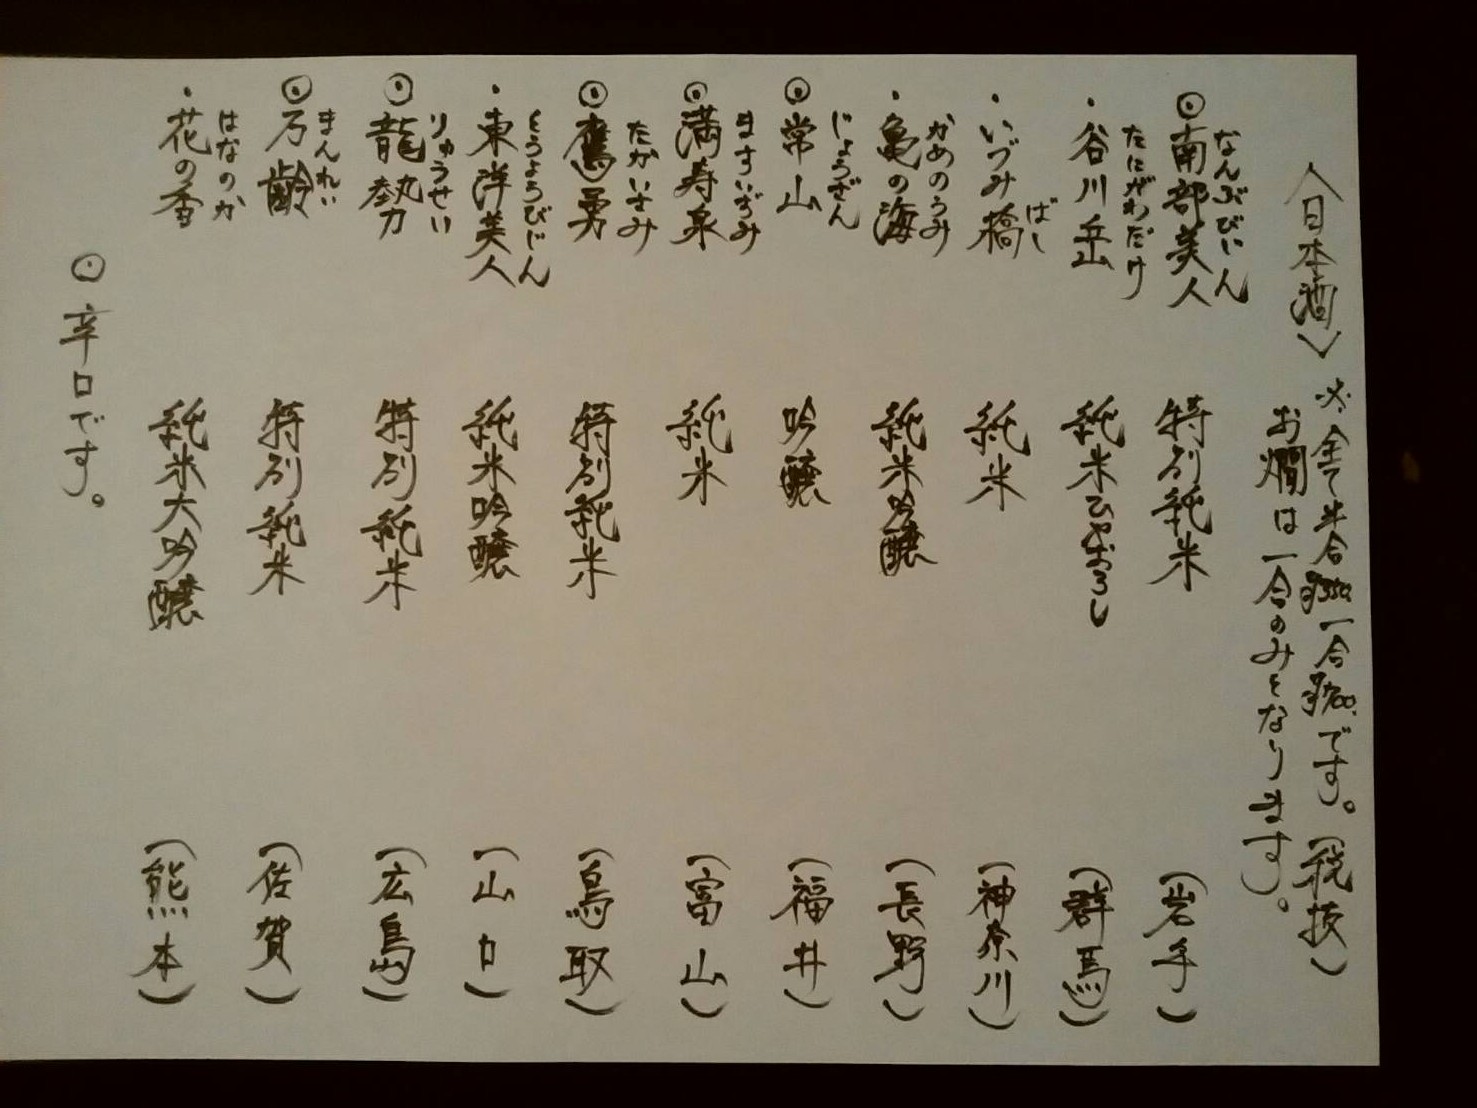 〈日本酒〉 ※全て半合￥350 一合￥700.です。(税抜)
お燗は一合のみとなります。
◎南部美人 なんぶびじん 特別純米 (岩手)
・谷川岳 たにがわだけ 純米ひやおろし (群馬)
・いづみ橋 ばし 純米 (神奈川)
・亀の海 かめのうみ 純米吟醸 (長野)
◎常山 じょうざん 吟醸 (福井)
◎満寿泉 ますいずみ 純米 (富山)
◎鷹勇 たかいさみ 特別純米 (鳥取)
・東洋美人 とうようびじん 純米吟醸 (山口)
◎龍勢 りゅうせい 特別純米 (広島)
◎万齢 まんれい 特別純米 (佐賀)
・花の香 はなのか 純米大吟醸 (熊本)
◎辛口です。